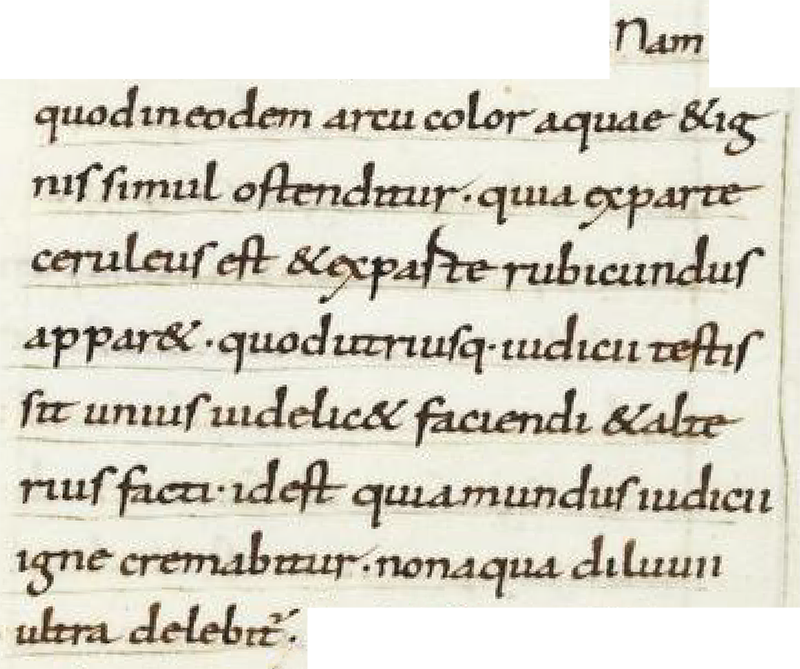 Nam
quod in eodem arcu color aquae & ig
nis simul ostenditur · quia ex parte
ceruleus est & ex parte rubicundus
appar& · quod utriusq · iudicii testis
sit unius uidelic& faciendi & alte
rius facti · id est quia mundus iudicii
igne cremabitur · non aqua diluuii
ultra delebit᷑ ·